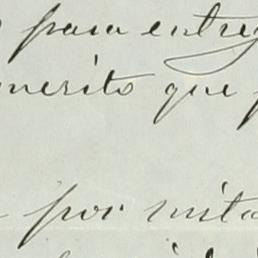 para entre
merito que
por mita